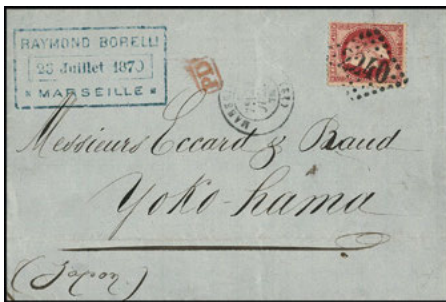 RAYMOND BORELLI
23 Juillet 1870
* MARSEILLE *
PD
2240
Messieurs Eccard & Baud
Yoko-hama
(Japon)